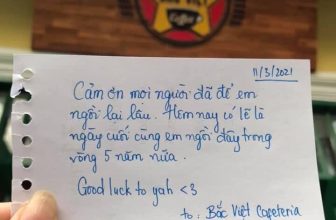 11/3/2021
Cảm ơn mọi người đã để em
ngồi lại lâu. Hôm nay có lẽ là
ngày cuối cùng em ngồi đây trong
vòng 5 năm nữa.
Good luck to yah <3
to: Bắc Việt Capeteria